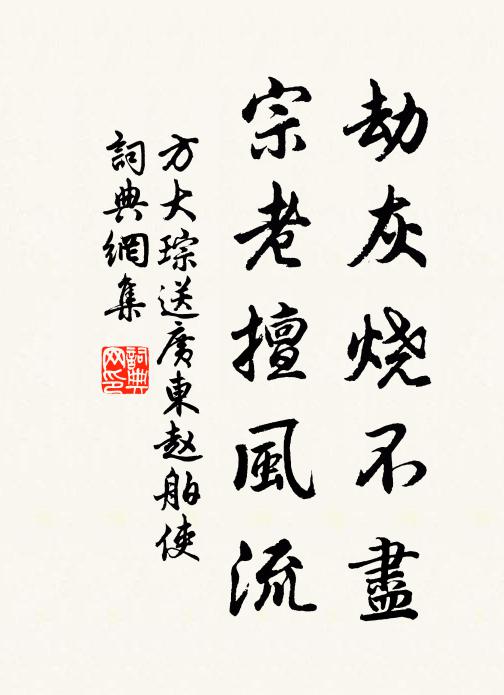 劫灰烧不盡
宗老擅風流
方大琮送廣東赵舶使
詞典網集
詞典網印